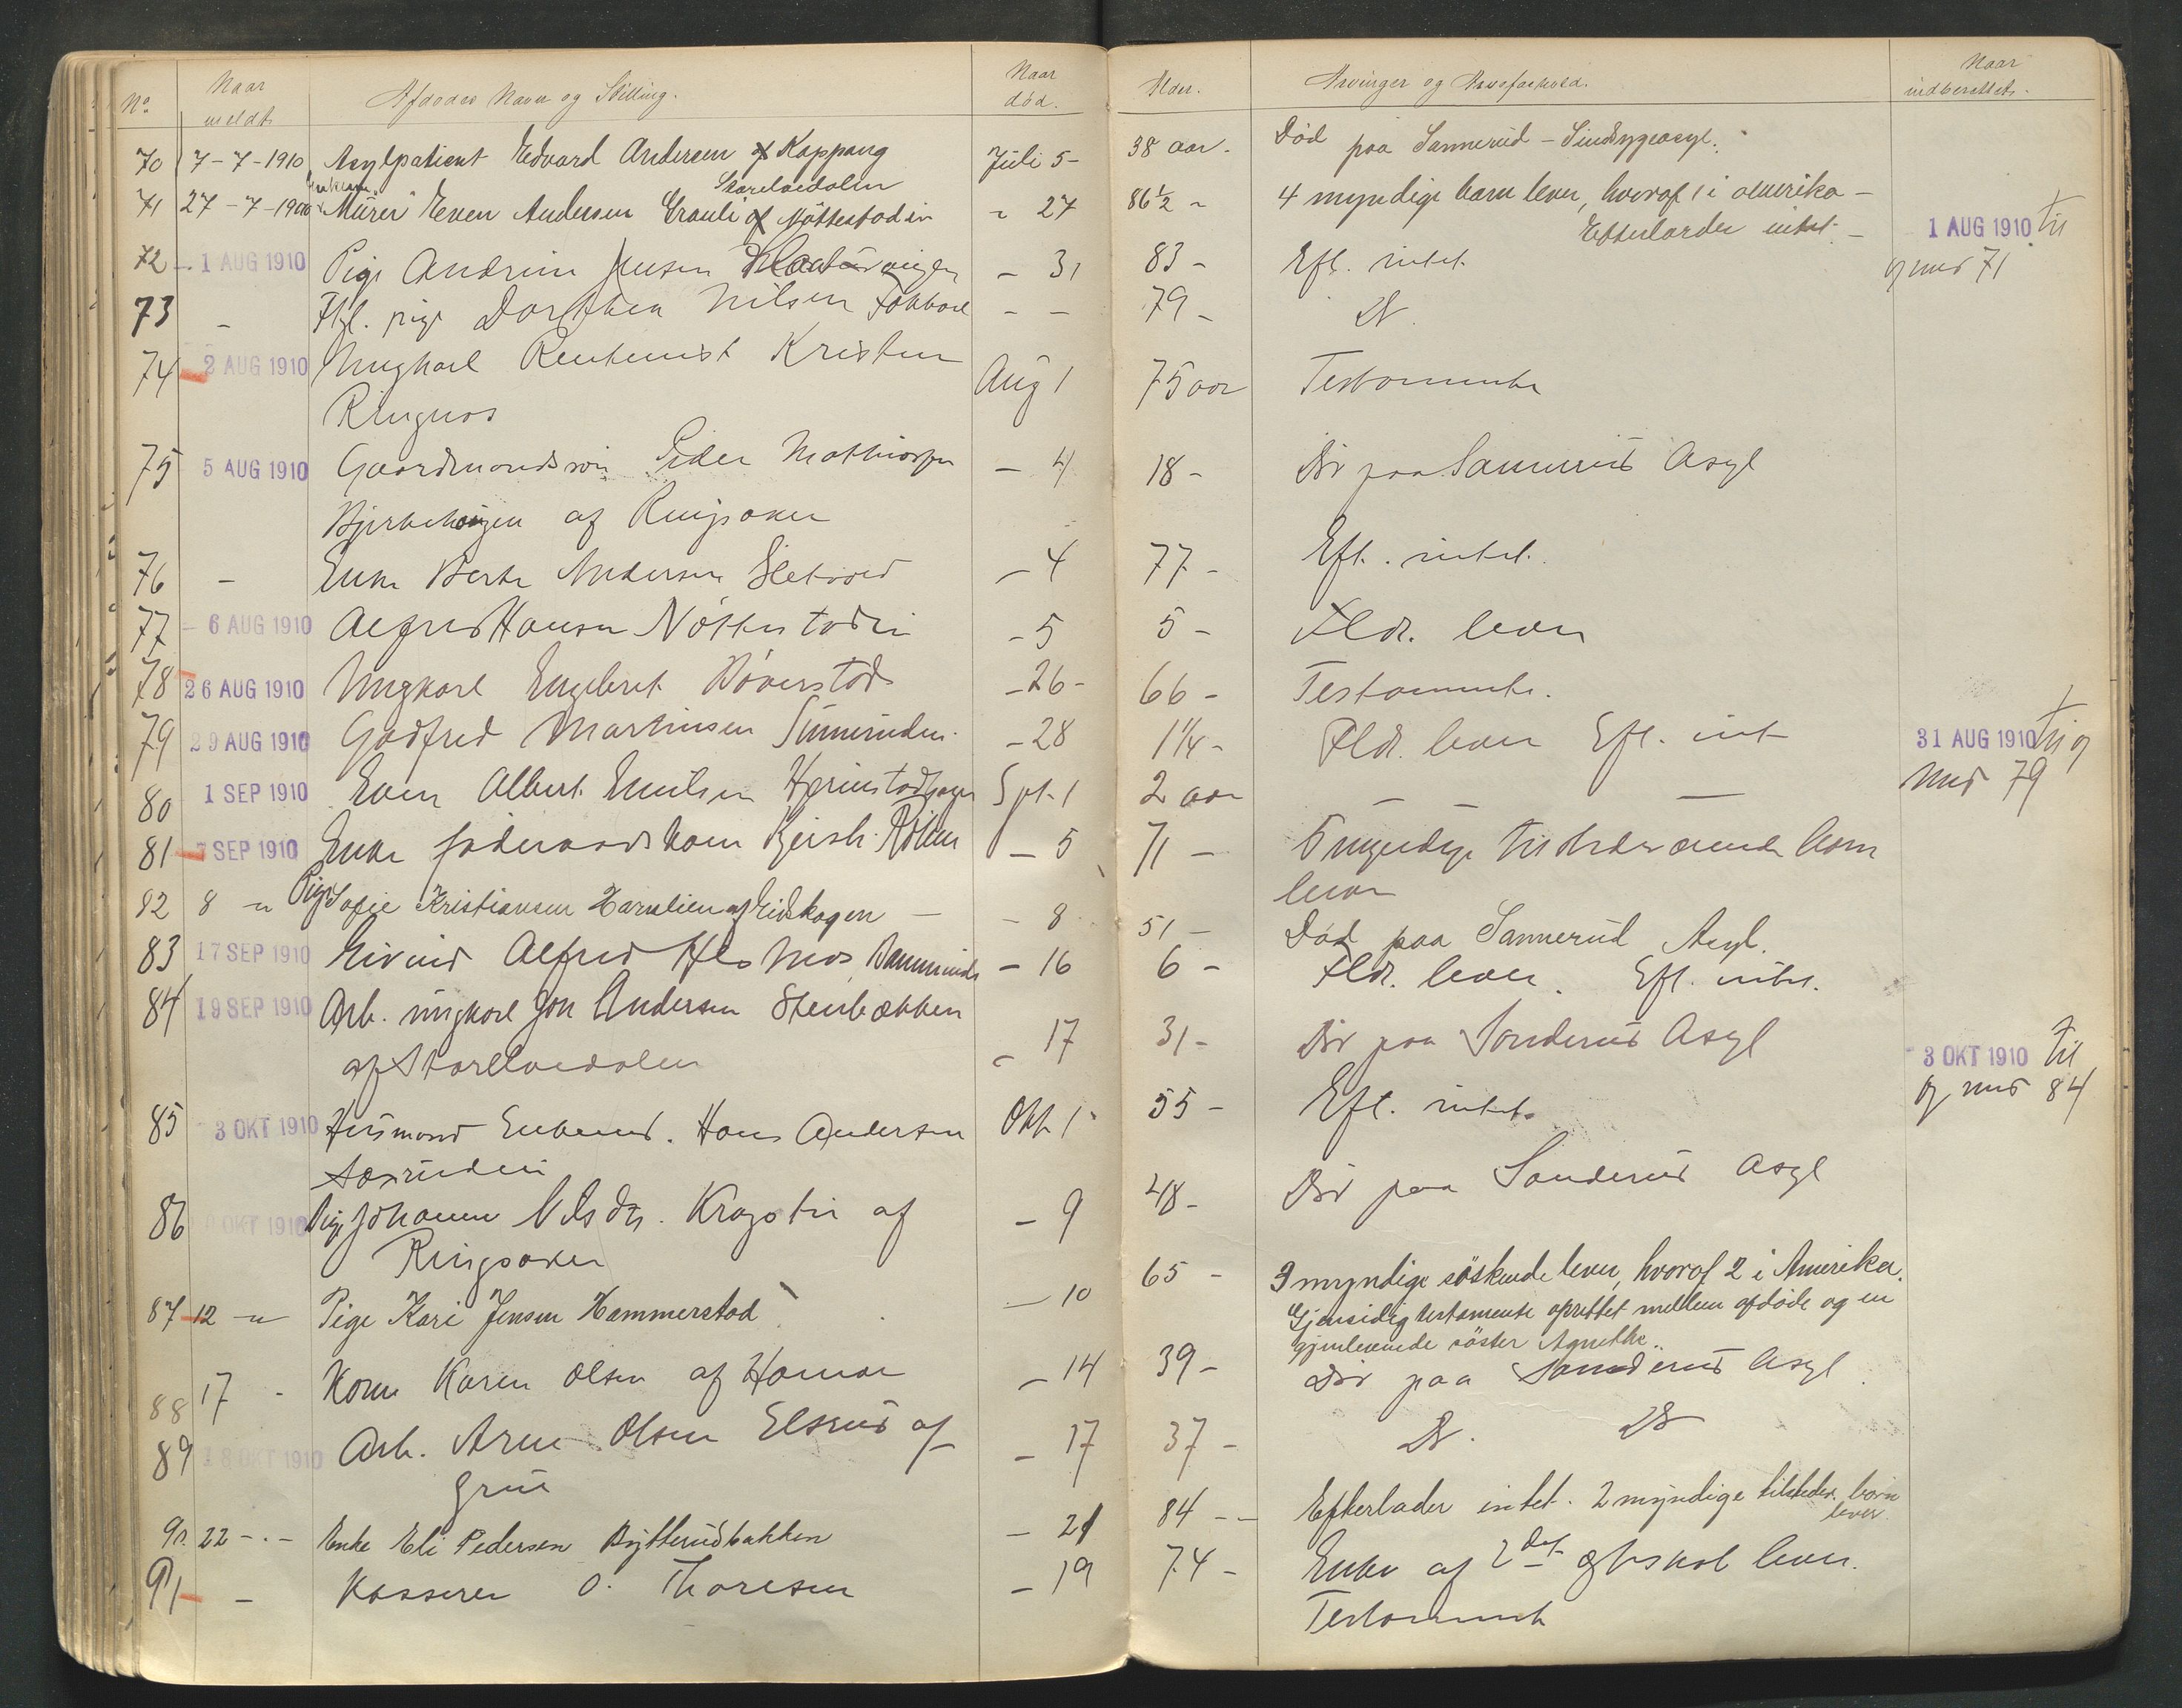 No. Naar meldt Afdødes Navn og Stilling. Naar død. Alder. Arvinger og Arvsforhold. Naar indberettet.
70 7-7-1910 Asylpatient Edvard Andersen af Koppang Juli 5- 38 aar. Død paa Sannerud-Sindsygeasyl.
Storelvedalen
71 27-7-1910 Murer Even Andersen af Nøttestad in - 27 86½ - 4 myndige barn lever, hvoraf 1 i Amerika -
Efterlader intet - 1 AUG 1910 til
72 - 1 AUG 1910 Pige Andrine Jensen - 31 83 - Eft. intet. og med 71
73 - pige Dorthea Nilsen - - 79 - Do.
74 2 AUG 1910 Ungkarl Rentenist Kristen Aug 1 75 aar Testamente
Ringnes
75 5 AUG 1910 Gaardmandssøn Peder Mathiasen - 4 18 - Død paa Sannerud Asyl
af Ringsaker
76 - Enke Berte Andersen - 4 77 - Eft. intet.
77 - 6 AUG 1910 Alfred Hansen Nøttestadin - 5 5 - Fldr. lever
78 26 AUG 1910 Ungkarl Engebret Bøverstad - 26 - 66 - Testamente.
79 29 AUG 1910 Godfred Martinsen - 28 1¼ - Fldr. lever Eft. int 31 AUG 1910 til og
med 79
80 1 SEP 1910 Even Albert Emilsen Spt. 1 2 aar - - -
81 7 SEP 1910 Enke føderaadskone Kjersti - 5 71 - 5 myndige tilstedeværende barn
lever
82 8 - " Pige Sofie Kristiansen af Eidskogen - - 8 51 - Død paa Sannerud Asyl.
83 17 SEP 1910 Eivind Alfred - 16 6 - Fldr. lever. Eft. intet.
84 19 SEP 1910 Arb. ungkarl Jon Andersen Stenbækken
af Storelvedalen - 17 31 - Død paa Sanderud Asyl 3 OKT 1910 til
og med 84
85 3 OKT 1910 Husmand Enkemd. Hans Andersen Okt 1 55 - Eft. intet.
86 OKT 1910 Pige Johanne Nilsdtr. af - 9 48 - Død paa Sanderud Asyl
Ringsaker
87 12 - " Pige Kari Jensen Hammerstad - 10 65 - 3 myndige søskende lever, hvoraf 2 i Amerika.
Gjensidig testamente oprettet mellem afdøde og en
gjenlevende søster Agnethe.
88 17 - Kone Karen Olsen af Hamar - 14 39 - Død paa Sanderud Asyl
89 18 OKT 1910 Arb. Arne Olsen Elsrud af - 17 37 - Do. Do
Grue
90. 22 - . - Enke Eli Pedersen Bytterudbakken - 21 84 - - Efterlader intet. 2 myndige tilstedev. børn
lever
91 - Kasserer O. Thoresen - 19 74 - Enke af 2det ægteskab lever.
Testamente